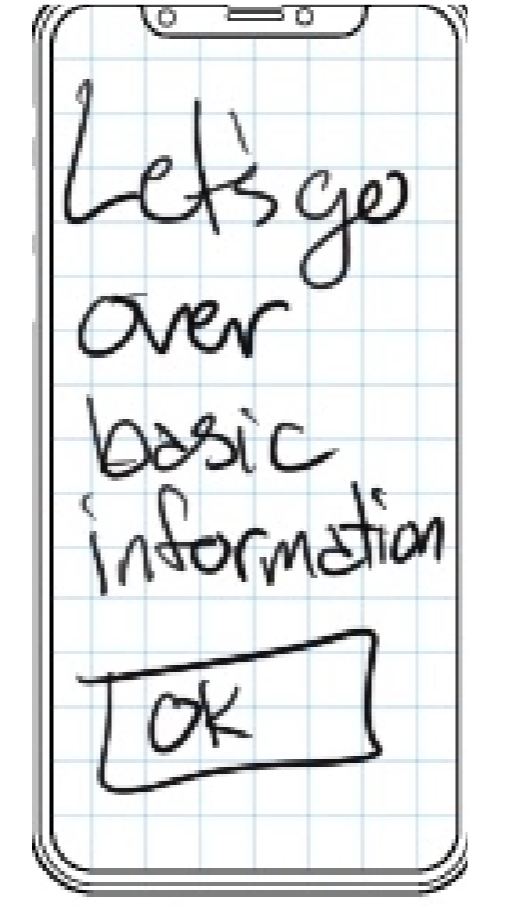 Let's go
over
basic
information
OK